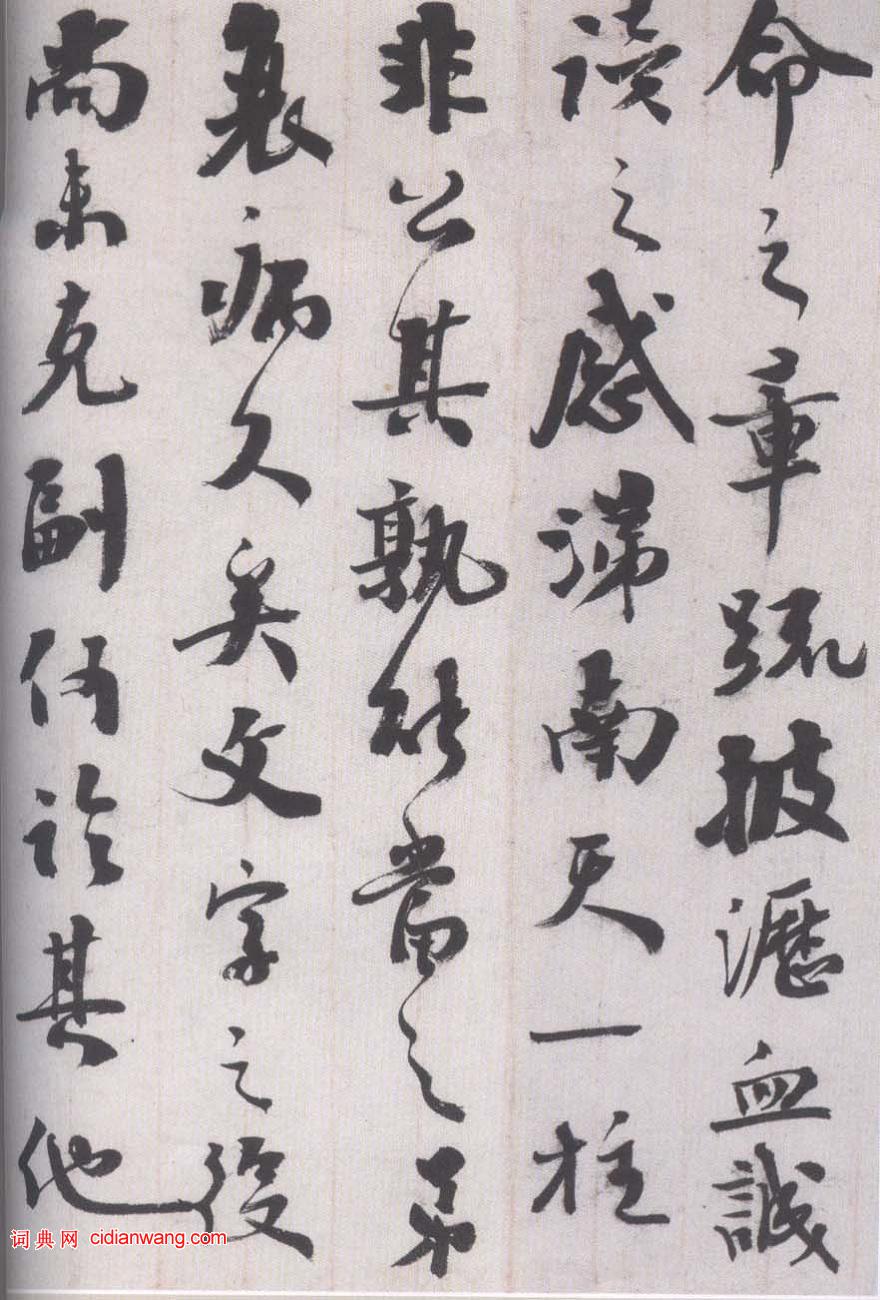 命之章疏披瀝血誠
讀之感涕南天一柱
非公其孰能當之弟
衰病久矣文字之役
尚未克副何論其他
词典网 cidianwang.com